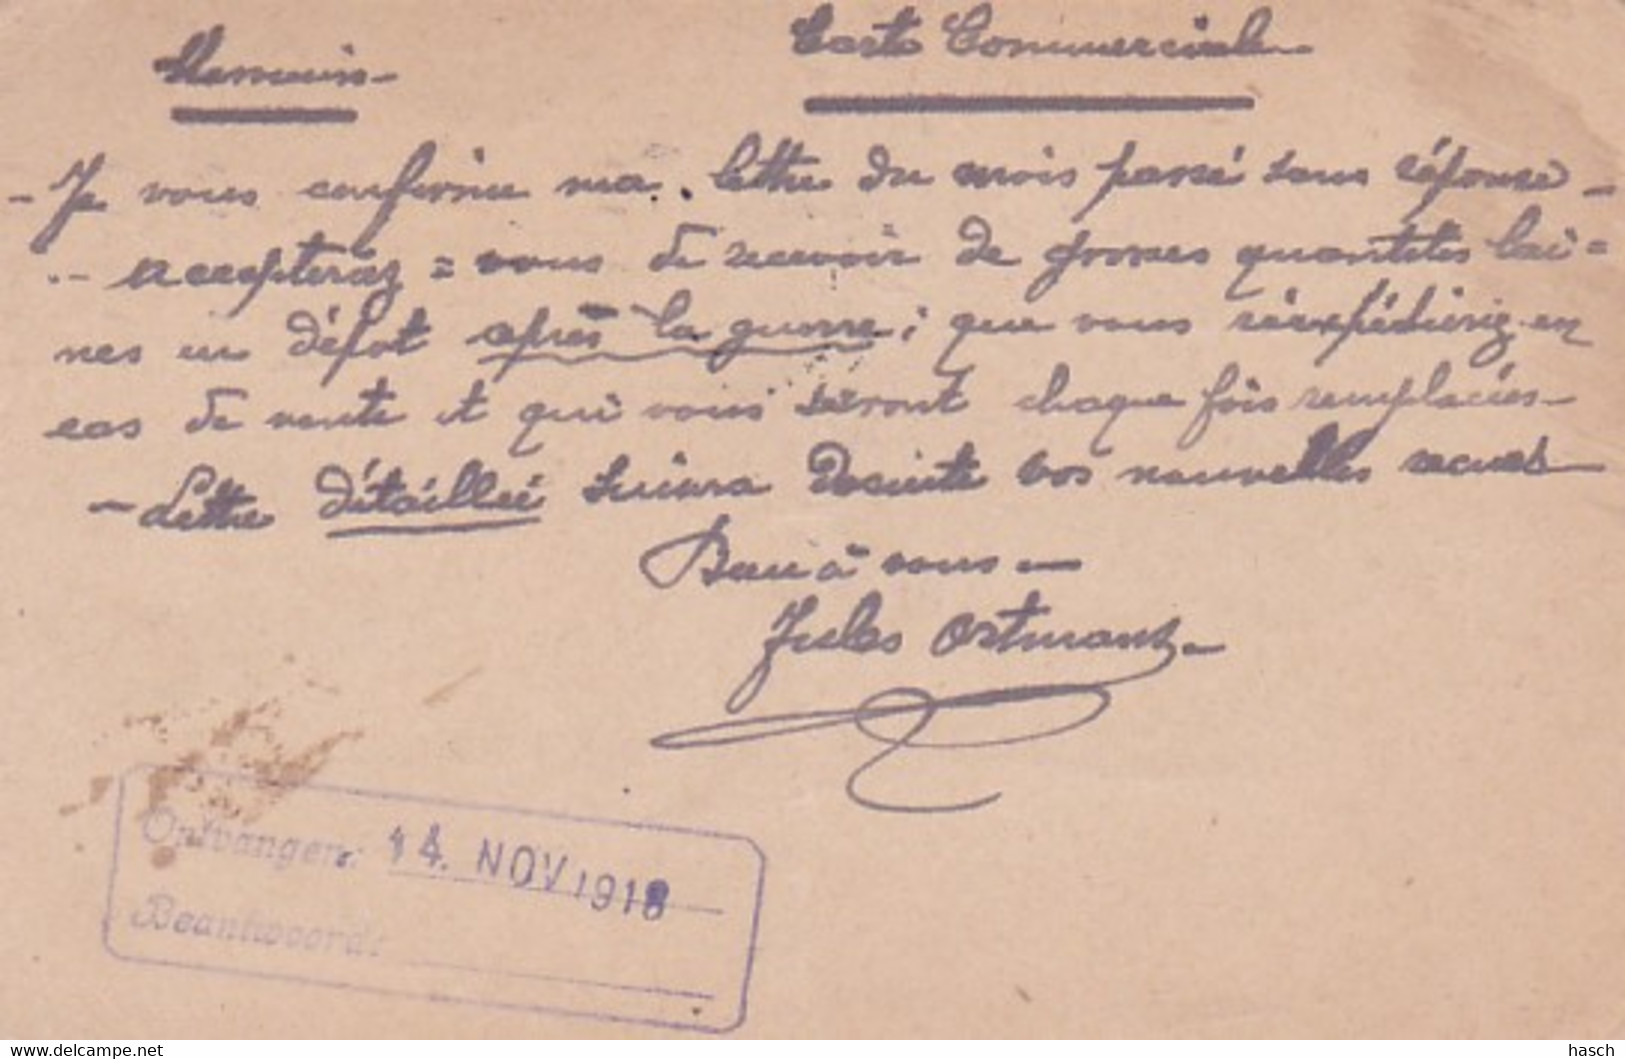 Carte Commerciale
- Je vous confirme ma lettre du mois passé sans réponse -
accepteriez = vous de recevoir de grosses quantités lai=
nes en dépot après la guerre; que vous réexpédieriez en
cas de vente et qui vous seront chaque fois remplacées -
- Lettre détaillée suivra de suite vos nouvelles recues -
Bien à vous -
Jules Ortmans -
Ontvangen: 14. NOV 1918
Beantwoord:
delcampe.net
hasch